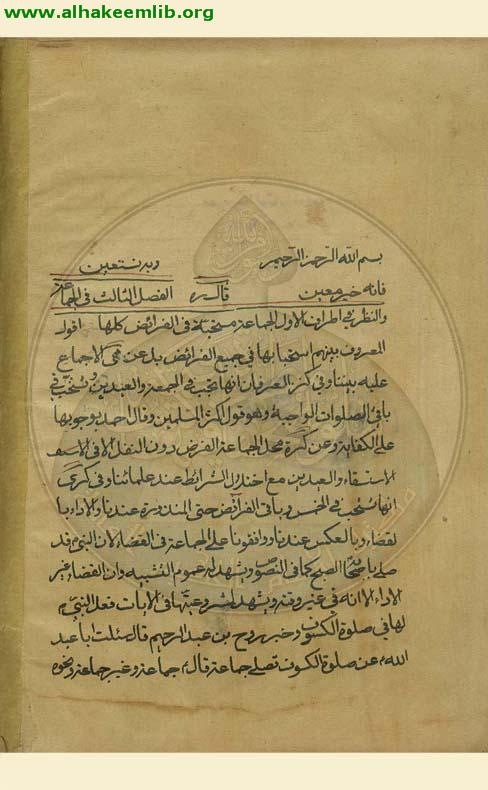 www.alhakeemlib.org
بسم الله الرحمن الرحيم وبه نستعين
فانه خير معين قال ره الفصل الثالث في الجماعة
والنظر في اطراف الاول الجماعة مستحبة في الفرائض كلها اقول
المعروف بينهم استحبابها في جميع الفرائض بل عن هي الاجماع
عليه بيننا وفي كنز العرفان انها تجب في الجمعة والعيدين وتستحب في
باقي الصلوات الواجبة وهو قول اكثر المسلمين وقال احمد بوجوبها
على الكفاية وعن كرة محل الجماعة الفرض دون النفل الا في
الاستسقاء والعيدين مع اختلال الشرائط عند علمائنا وفي كرى
انها تستحب في الخمس وباقي الفرائض حتى المنذورة عندنا والاداء با
لقضاء وبالعكس عندنا ووافقونا على الجماعة في القضاء لان النبي ص قد
صلى باصحابه الصبح كما في النصوص ويشهد له عموم التشبيه وان القضاء غير
الاداء الا انه في غير وقته ويشهد لشروعيتها في الايات فعل النبي ص
لها في صلوة الكسوف وخبر روح بن عبد الرحيم قال سئلت ابا عبد
الله ع عن صلوة الكسوف تصلى جماعة قال ع جماعة وغير جماعة ونحوه